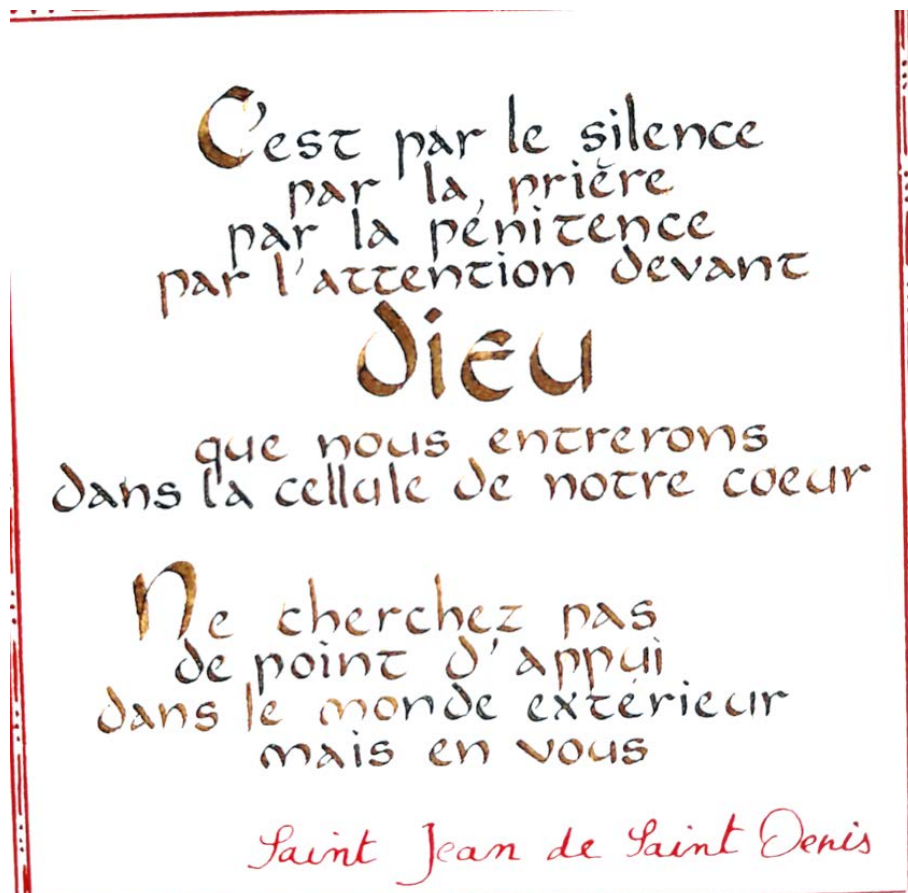 C'est par le silence
par la prière
par la pénitence
par l'attention devant
Dieu
que nous entrerons
dans la cellule de notre coeur
Ne cherchez pas
de point d'appui
dans le monde extérieur
mais en vous
Saint Jean de Saint Denis